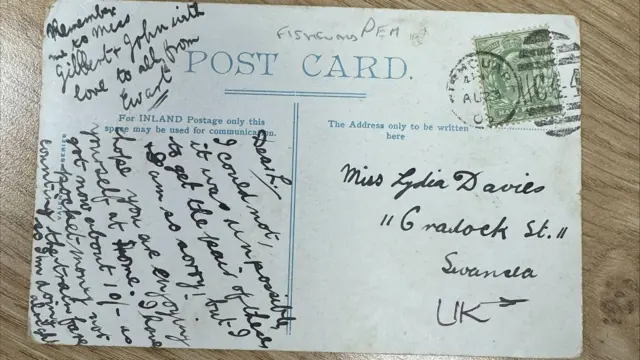 Remember
me to Miss
Gilbert & John with
love to all from
Ewart
FISHGUARD PEM
POST CARD.
For INLAND Postage only this
space may be used for communication.
The Address only to be written
here
Dear L.
I could not,
it was impossible,
to get the pair of these
I am so sorry! but I
hope you are enjoying
yourself at home. I have
got now about 10/- as
pocket money not
counting the train fare
so I'm doing
alright
Miss Lydia Davies
"Cradock St."
Swansea
UK
AU